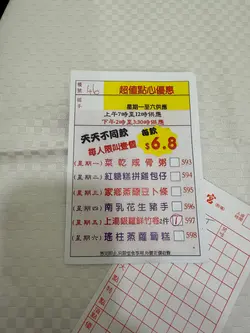 檯號 46
超值點心優惠
星期一至六供應
上午7時至12時供應
下午2時至3:30時供應
天天不同款 每款
每人限叫壹個 $6.8
(星期一) 菜乾咸骨粥 593
(星期二) 紅糖糕拼雞包仔 594
(星期三) 家鄉蒸釀豆卜 595
(星期四) 南乳花生豬手 596
(星期五) 上湯銀蘿鮮竹卷 2件 1 597
(星期六) 瑤柱蒸蘿蔔糕 598